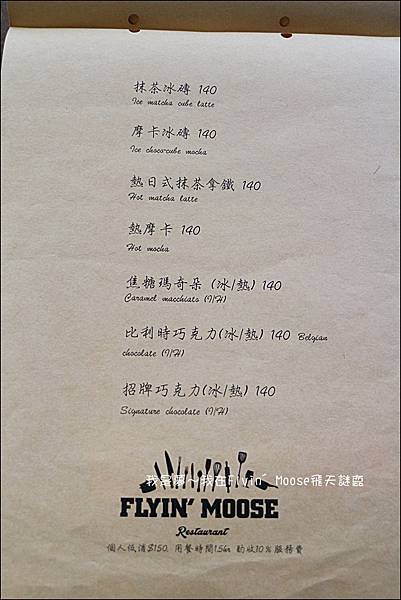 抹茶冰磚 140
Ice matcha cube latte
摩卡冰磚 140
Ice choco-cube mocha
熱日式抹茶拿鐵 140
Hot matcha latte
熱摩卡 140
Hot mocha
焦糖瑪奇朵 (冰/熱) 140
Caramel macchiato (I/H)
比利時巧克力(冰/熱) 140 Belgian
chocolate (I/H)
招牌巧克力(冰/熱) 140
Signature chocolate (I/H)
我在Flyin' Moose飛天謎露
FLYIN' MOOSE
Restaurant
個人低消$150. 用餐時間1.5hr 酌收10%服務費